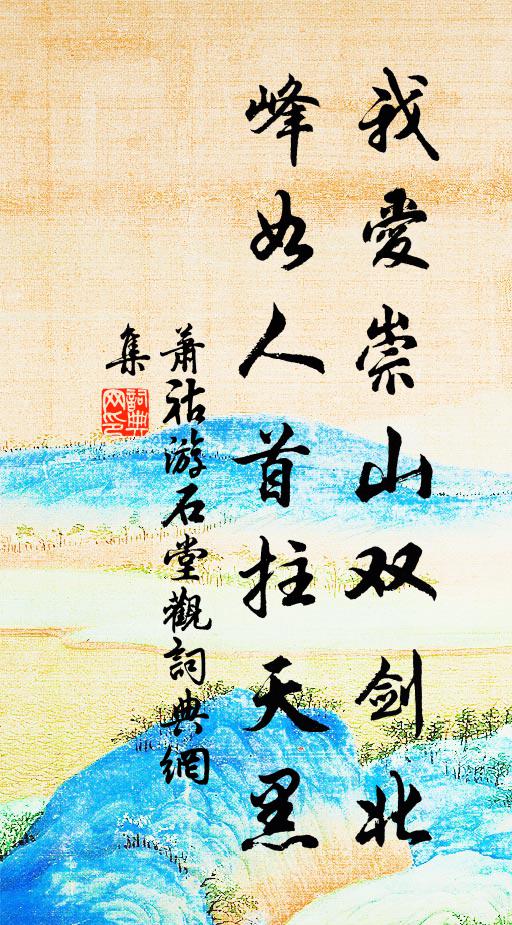 我愛崇山双剑北
峰如人首拄天黑
萧祜游石堂觀詞典網
集
詞典网印